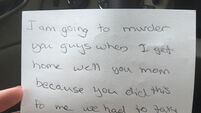 I am going to murder
you guys when I get
home well you mom
because you did this
to me we had to take